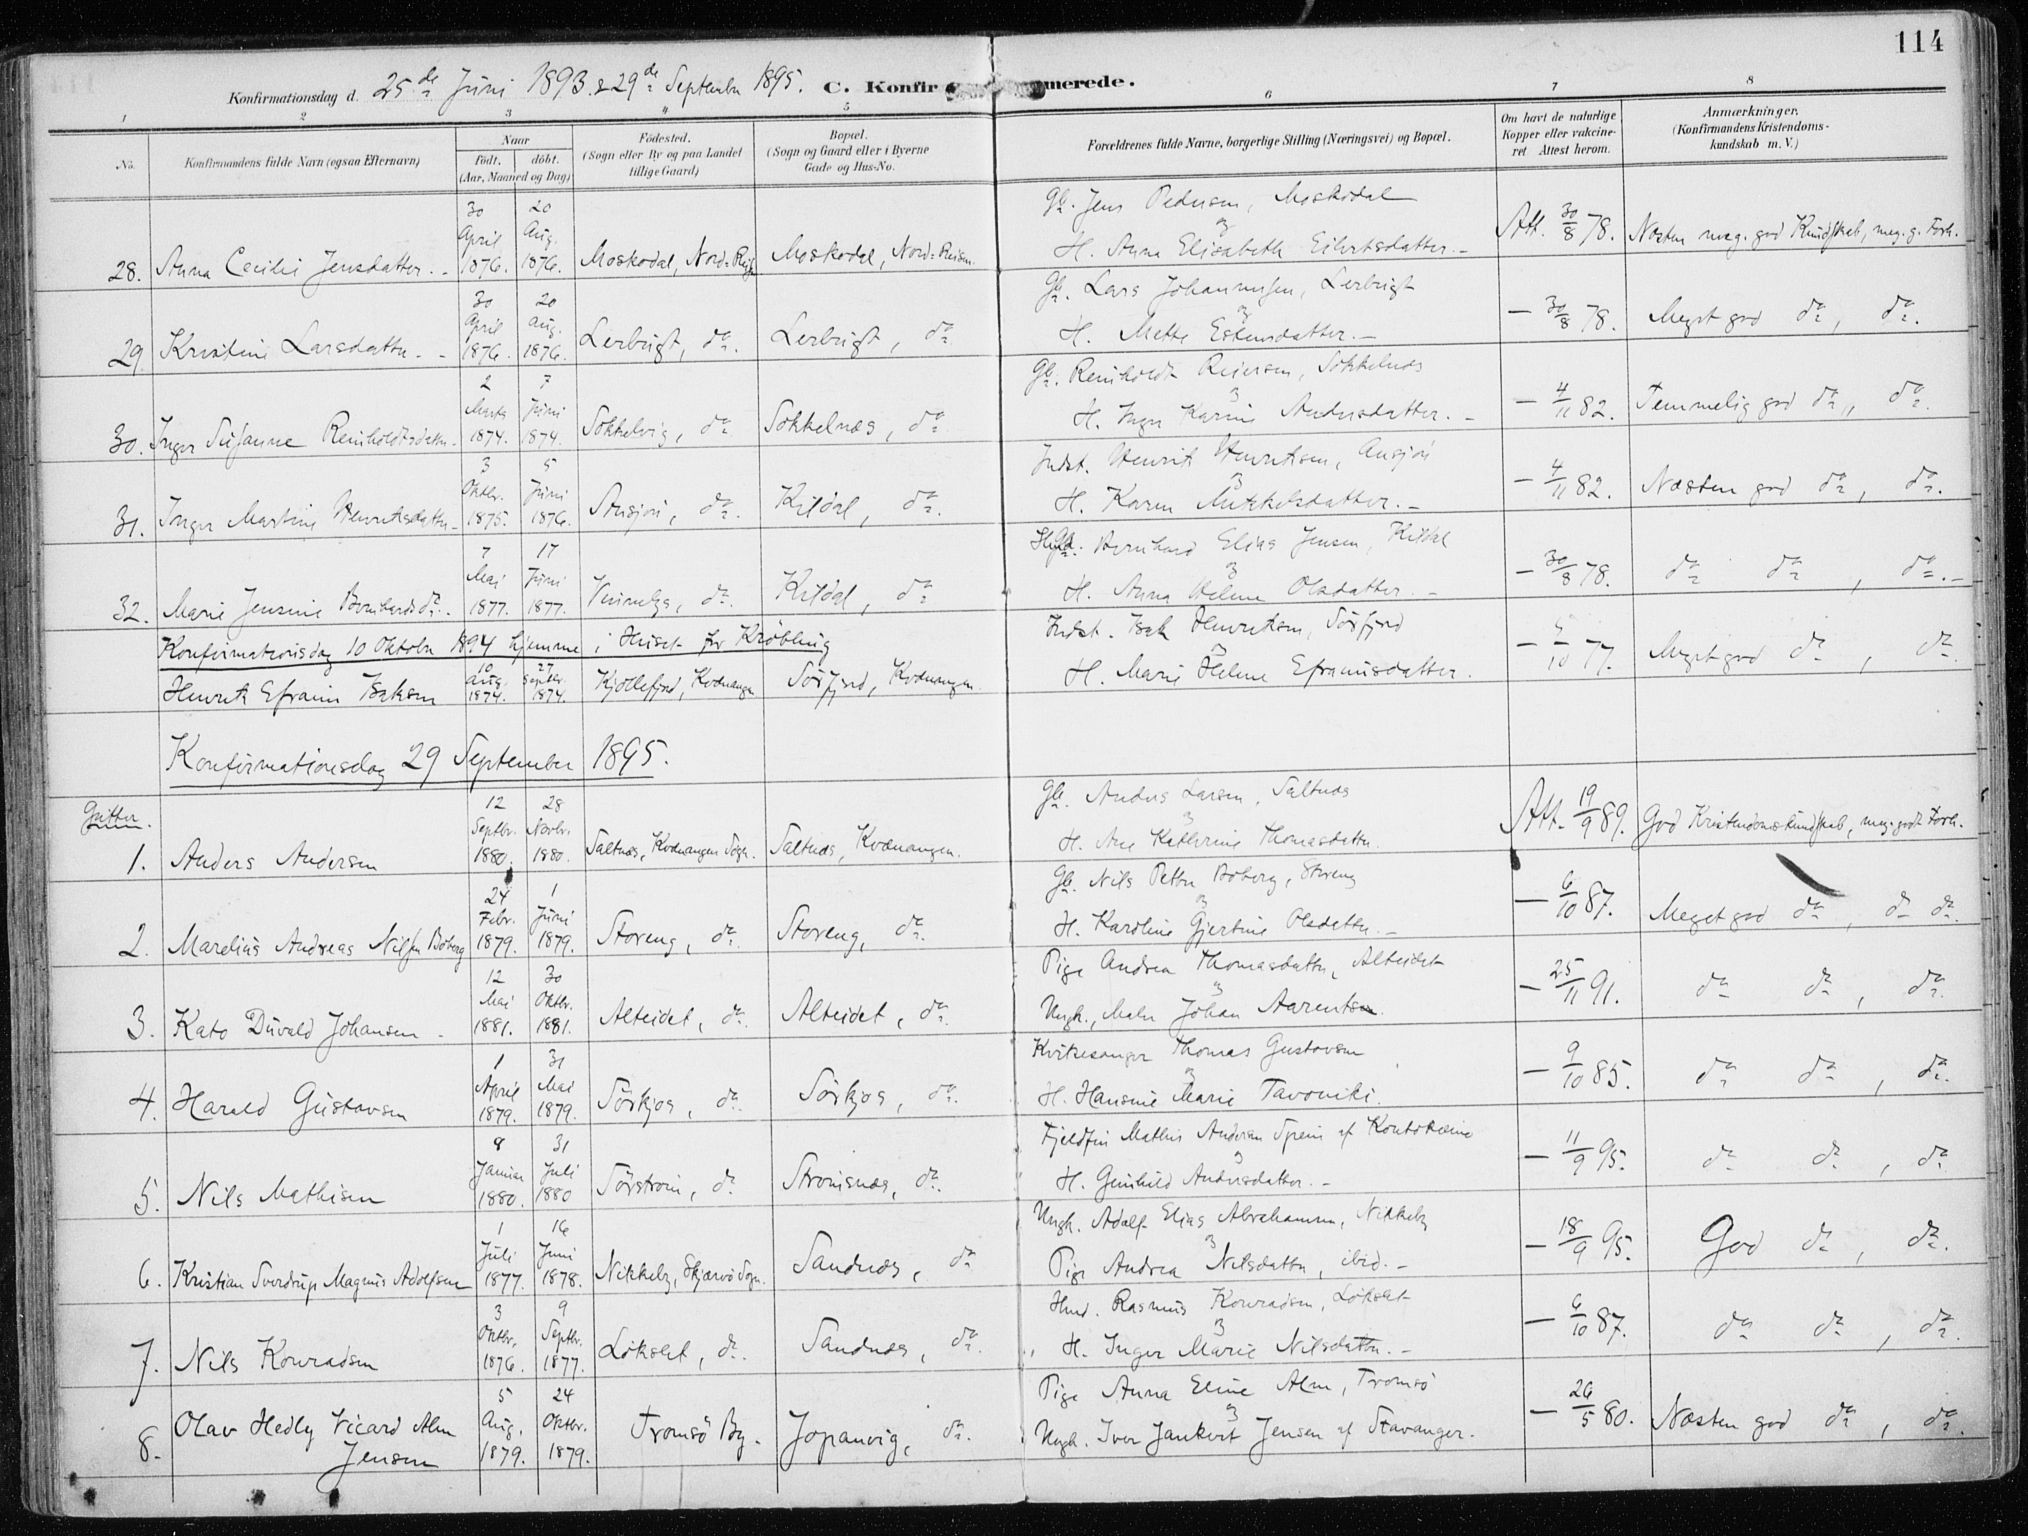 114
Konfirmationsdag d. 25de Juni 1893 & 29de September 1895. C. Konfir merede.
1 2 3 4 5 6 7 8
No. Konfirmandens fulde Navn (ogsaa Efternavn) Naar født. døbt. (Aar, Maaned og Dag) Fødested. (Sogn eller By og paa Landet tillige Gaard) Bopæl. (Sogn og Gaard eller i Byerne Gade og Hus-No. Forældrenes fulde Navne, borgerlige Stilling (Næringsvei) og Bopæl. Om havt de naturlige Kopper eller vakcineret Attest herom. Anmærkninger. (Konfirmandens Kristendomskundskab m. V.)
28. Anna Cecilie Jensdatter. 30 April 1876. 20 Aug. 1876. Moskodal, Nord-Reis Moskodal, Nord-Reisen. Gb. Jens Pedersen, Moskodal & H. Anna Elisabeth Eilertsdatter. Att. 30/8 78. Næsten meg. god Kundskab, meg. g. Forh.
29 Kristine Larsdatter. 30 April 1876. 20 Aug. 1876. Lerbugt, do. Lerbugt, do. Gb. Lars Johannesen, Lerbugt & H. Mette Estensdatter. — 30/8 78. Meget god do, do.
30. Inger Susanne Reinholdtsdattr. 2 Marts 1874. 7 Juni 1874. Sokkelvig, do. Sokkelnæs, do. Gb. Reinholdt Reiersen, Sokkelnæs & H. Inger Karine Andersdatter. — 4/11 82. Temmelig god do, do.
31. Inger Martine Henriksdattr. 3 Oktbr. 1875. 5 Juni 1876. Ansjon, do. Kildal, do. Indst. Henrik Henriksen, Ansjon & H. Karen Mikkelsdatter. — 4/11 82. Næsten god do, do.
32. Marie Jensine Bernhardsdr. 7 Mai 1877. 17 Juni 1877. do. Kildal, do. Bernhard Elias Jensen, Kildal & H. Anna Helene Olsdatter. — 30/8 78. do do, do.
Konfirmationsdag 10 Oktober 1894 hjemme i Huset for Krøbling
Henrik Efraim Isaksen 10 Aug. 1874. 27 Septbr. 1874. Kjøllefjord, Kvænangen Sørfjord, Kvænangen Indst. Isak Henriksen, Sørfjord & H. Marie Helene Efraimsdatter. — 5/10 77. Meget god do, do.
Konfirmationsdag 29 September 1895.
Gutter.
1. Anders Andersen 12 Septbr. 1880. 28 Novbr. 1880. Saltnæs, Kvænangen Sogn. Saltnæs, Kvænangen. Gb. Anders Larsen, Saltnæs & H. Ane Kathrine Thomasdattr. Att. 19/9 89. God Kristendomskundskab, meg. godt Forh.
2. Marelius Andreas Nilsen Boberg 24 Febr. 1879. 1 Juni 1879. Storeng, do. Storeng, do. Gb. Nils Petter Boberg, Storeng & H. Karoline Gjertine Olsdattr. — 6/10 87. Meget god do, do do.
3. Kato Duvald Johansen 12 Mai 1881. 30 Oktbr. 1881. Alteidet, do. Alteidet, do. Pige Andrea Thomasdattr, Alteidet & Ungk., Maler Johan Aarentsen. — 25/11 91. do do, do.
4. Harald Gustavsen 1 April 1879. 31 Mai 1879. Sørkjos, do. Sørkjos, do. Kirkesanger Thomas Gustavsen & H. Hansine Marie Tavoniki. — 9/10 85. do do, do.
5. Nils Mathisen 8 Januar 1880. 31 Juli 1880 Sørstrøm, do. Strømsnæs, do. Fjeldfin Mathis Andersen Spein af Koutokæino & H. Gunhild Andersdatter. — 11/9 95. do do, do
6. Kristian Sverdrup Magnus Adolfsen 1 Juli 1877. 16 Juni 1878. Nikkeby, Skjærvø Sogn. Sandnæs, do Ungk. Adolf Elias Abrahamsen, Nikkeby & Pige Andrea Nilsdattr, ibid. — 18/9 95. God do, do.
7. Nils Konradsen 3 Oktbr. 1876. 9 Septbr. 1877. Løkslet, do. Sandnæs, do. Hmd. Rasmus Konradsen, Løkslet & H. Inger Marie Nilsdattr. — 6/10 87. do do, do.
8. Olav Hedly Vicard Alm Jensen 5 Aug. 1879. 24 Oktbr. 1879. Tromsø By. Jopanvig, do. Pige Anna Eline Alm, Tromsø & Ungk. Iver Jankert Jensen af Stavanger. — 26/5 80. Næsten god do, do.